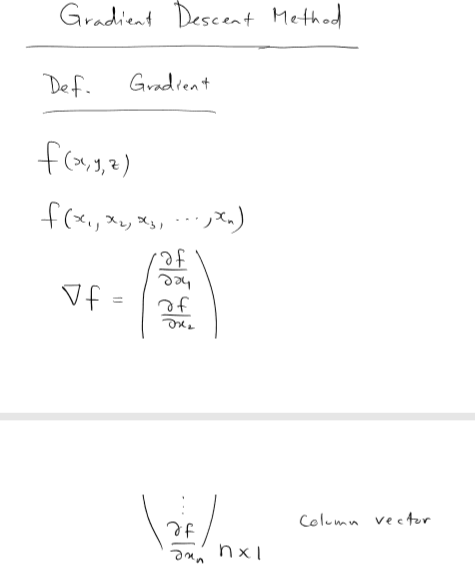 Gradient Descent Method
Def. Gradient
f(x,y,z)
f(x₁, x₂, x₃, ..., xₙ)
∇f = ( ∂f/∂x₁
∂f/∂x₂
⋮
∂f/∂xₙ ) n×1 Column vector